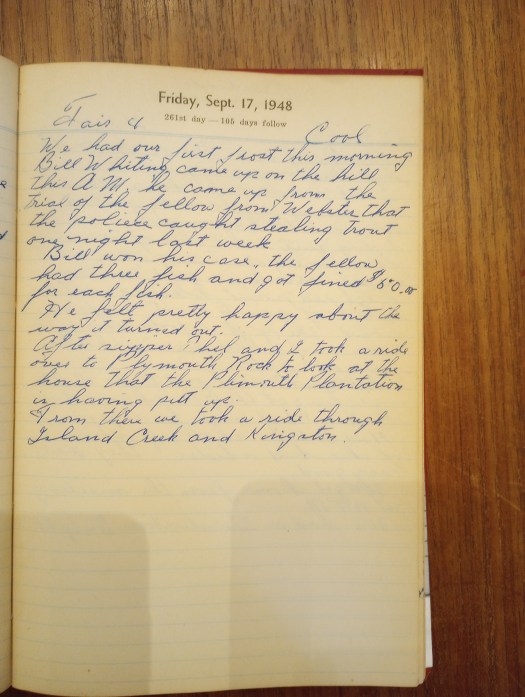 Friday, Sept. 17, 1948
261st day — 105 days follow
Fair & Cool
We had our first frost this morning
Bill Whiting came up on the hill
this A M, he came up from the
trial of the fellow from Webster that
the poliece caught stealing trout
one night last week
Bill won his case, the fellow
had three fish and got fined $50.00
for each fish.
He felt pretty happy about the
way it turned out.
After supper Thel and I took a ride
over to Plymouth Rock to look at the
house that the Plimouth Plantation
is having putt up.
From there we took a ride through
Island Creek and Kingston.